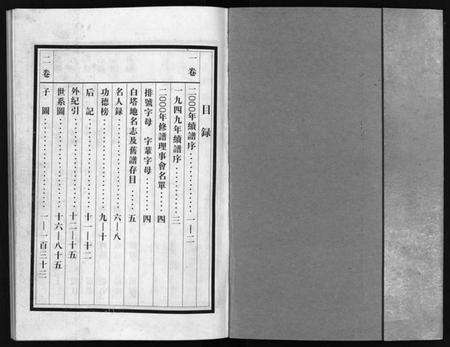 目录
一卷
二〇〇〇年續譜序 一—二
一九四九年續譜序 三
二〇〇〇年修譜理事會名單 四
排號字母 字輩字母 四
白塔地名志及舊譜存目 五
名人録 六—八
功德榜 九—十
后記 十一—十二
外紀引 十二—十五
世系圖 十六—八十五
二卷
子圖 一—一百三十三